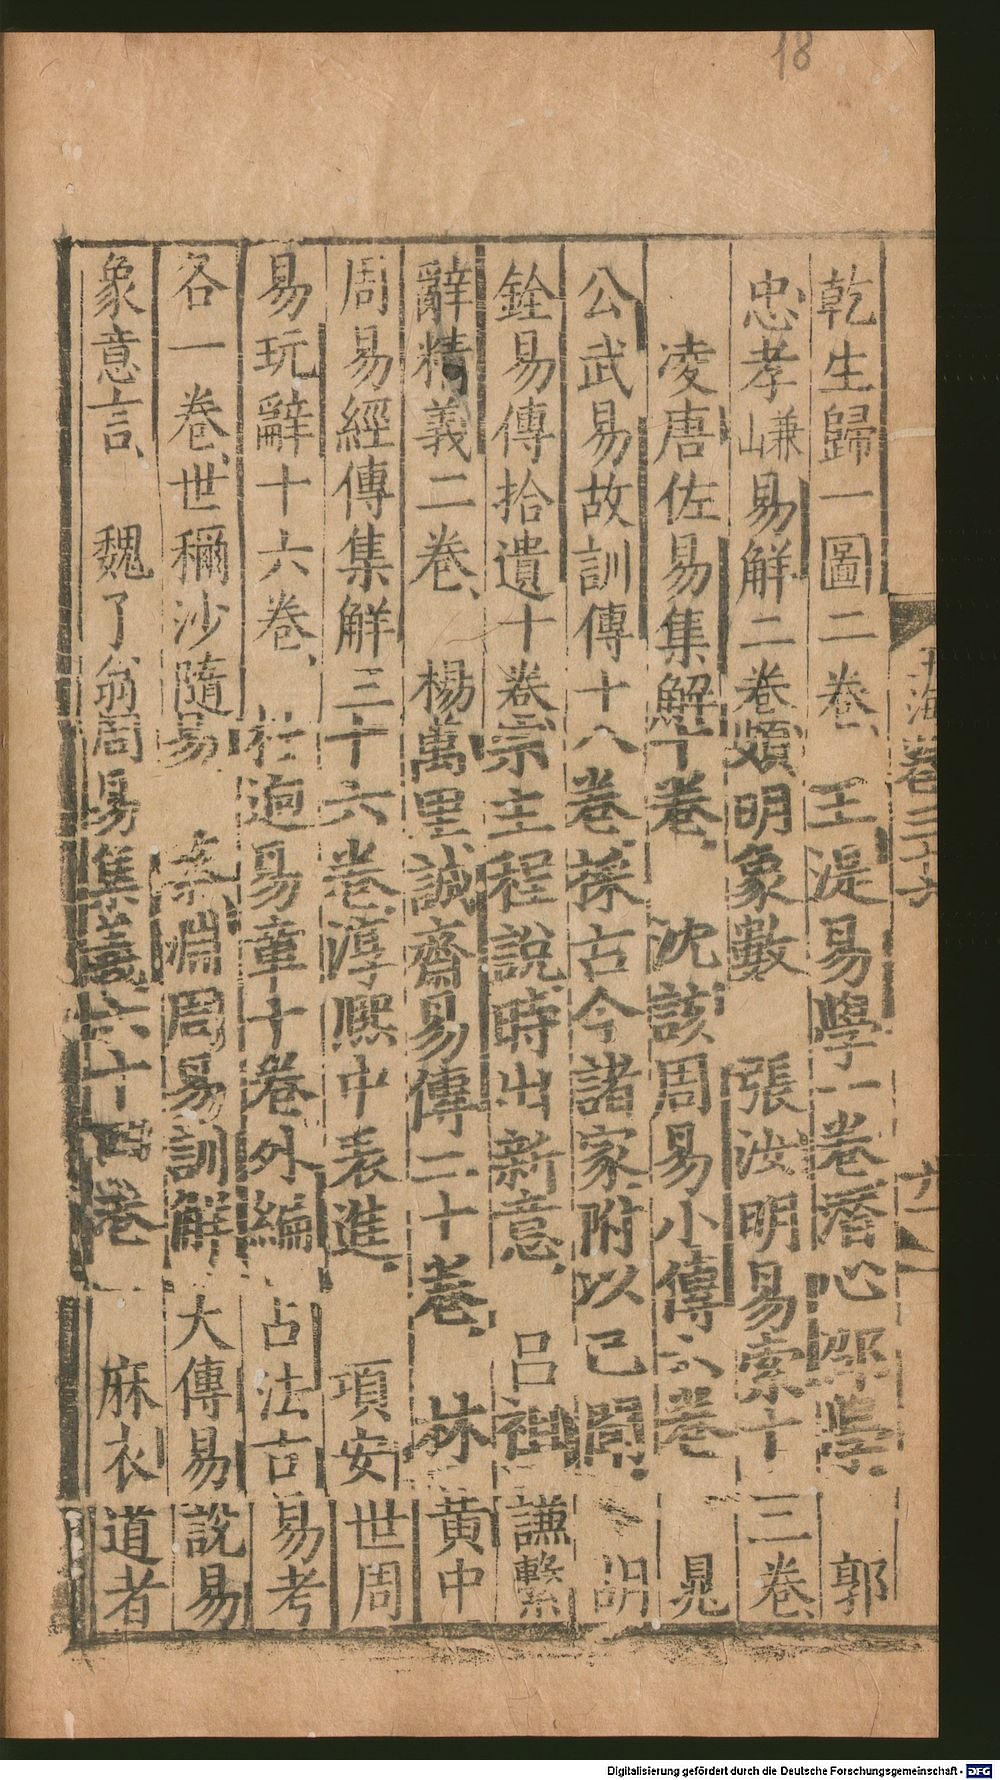 18
玉海卷三十六
六
乾生歸一圖二卷王湜易學一卷㽔心邵學郭
忠孝㒹易解二卷頗明象數張汝明易索十三卷
凌唐佐易集解一卷沈該周易小傳六卷晁
公武易故訓傳十八卷採古今諸家附以己聞胡
銓易傳拾遺十卷宗主程說時出新意呂祖謙繫
辭精義二卷楊萬里誠齋易傳二十卷林黃中
周易經傳集解三十六卷淳熙中表進項安世周
易玩辭十六卷杜𨓏易章十卷外編占法古易考
各一卷世稱沙隨易蔡淵周易訓解大傳易說易
象意言魏了翁周易集義六十四卷麻衣道者
Digitalisierung gefördert durch die Deutsche Forschungsgemeinschaft - DFG